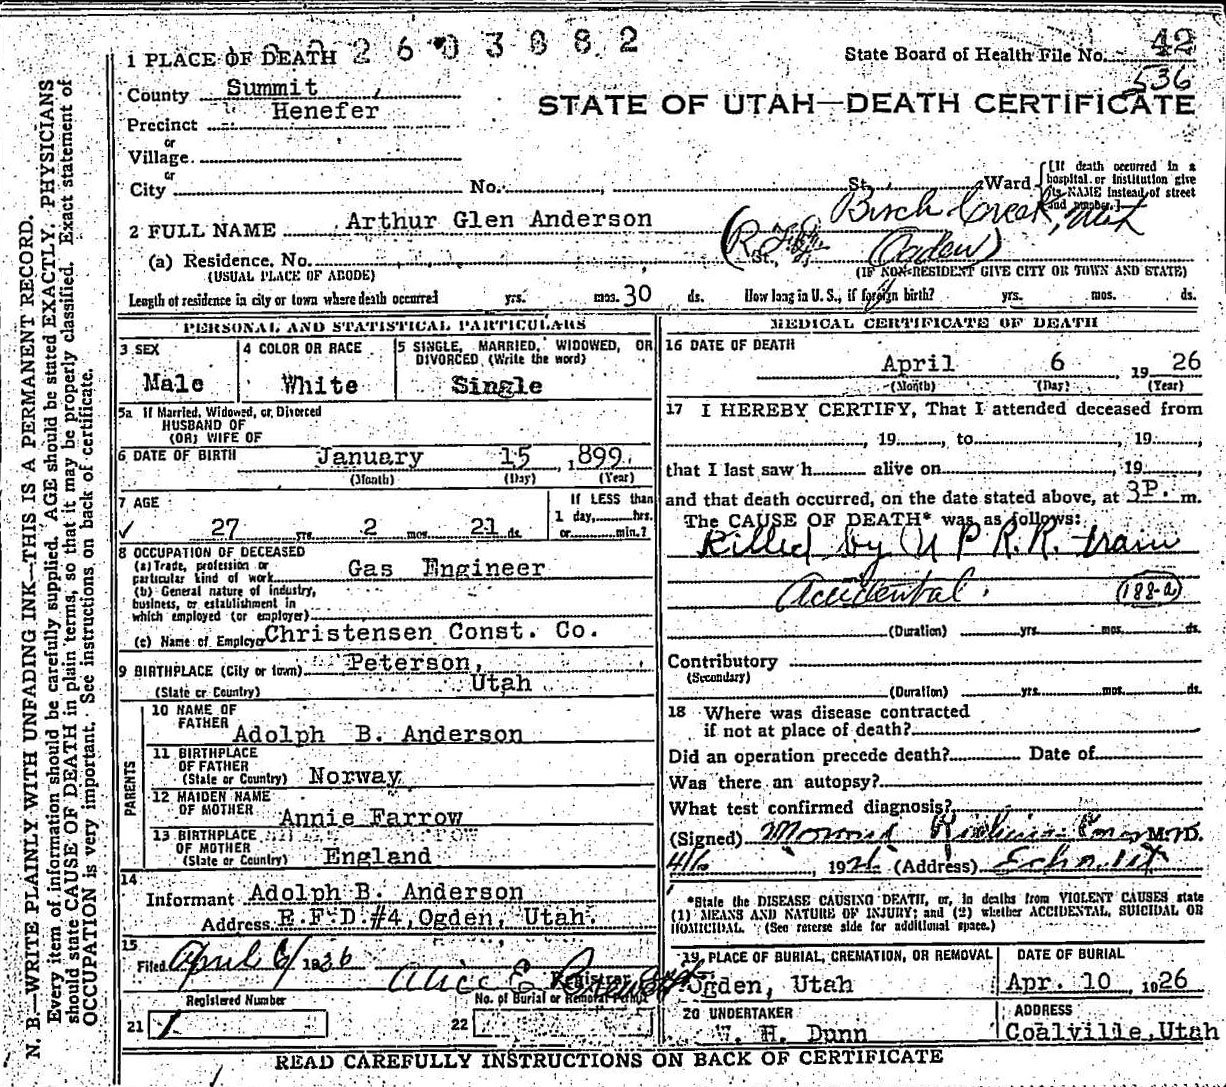 N. B.—WRITE PLAINLY WITH UNFADING INK—THIS IS A PERMANENT RECORD.
Every item of information should be carefully supplied. AGE should be stated EXACTLY. PHYSICIANS
should state CAUSE OF DEATH in plain terms, so that it may be properly classified. Exact statement of
OCCUPATION is very important. See instructions on back of certificate.
1 PLACE OF DEATH
State Board of Health File No. 42
536
County Summit
Henefer
Precinct
or
Village
or
City No. St. Ward
[If death occurred in a
hospital or institution give
its NAME instead of street
and number.]
STATE OF UTAH—DEATH CERTIFICATE
2 FULL NAME Arthur Glen Anderson
Birch Creek, Utah
(Ogden)
(a) Residence, No. St.
(USUAL PLACE OF ABODE)
(IF NON-RESIDENT GIVE CITY OR TOWN AND STATE)
Length of residence in city or town where death occurred yrs. mos. 30 ds. How long in U. S., if foreign birth? yrs. mos. ds.
PERSONAL AND STATISTICAL PARTICULARS
3 SEX
Male
4 COLOR OR RACE
White
5 SINGLE, MARRIED, WIDOWED, OR
DIVORCED (Write the word)
Single
5a If Married, Widowed, or Divorced
HUSBAND OF
(OR) WIFE OF
6 DATE OF BIRTH January 15 1899
(Month) (Day) (Year)
7 AGE
27 yrs. 2 mos. 21 ds.
If LESS than
1 day, hrs.
or min.?
8 OCCUPATION OF DECEASED
(a) Trade, profession or
particular kind of work Gas Engineer
(b) General nature of industry,
business, or establishment in
which employed (or employer)
(c) Name of Employer Christensen Const. Co.
9 BIRTHPLACE (City or town) Peterson,
(State or Country) Utah
PARENTS
10 NAME OF
FATHER Adolph B. Anderson
11 BIRTHPLACE
OF FATHER
(State or Country) Norway
12 MAIDEN NAME
OF MOTHER Annie Farrow
13 BIRTHPLACE
OF MOTHER
(State or Country) England
14
Informant Adolph B. Anderson
Address R.F.D. #4, Ogden, Utah.
15
Filed April 6/1926
Alice E
Registrar
Registered Number
No. of Burial or Removal Permit
21 1
22
MEDICAL CERTIFICATE OF DEATH
16 DATE OF DEATH
April 6 1926
(Month) (Day) (Year)
17 I HEREBY CERTIFY, That I attended deceased from
, 19 , to , 19 ,
that I last saw h alive on , 19 ,
and that death occurred, on the date stated above, at 3P. m.
The CAUSE OF DEATH* was as follows:
Killed by U P R.R. train
Accidental. (188-a)
(Duration) yrs. mos. ds.
Contributory
(Secondary)
(Duration) yrs. mos. ds.
18 Where was disease contracted
if not at place of death?
Did an operation precede death? Date of
Was there an autopsy?
What test confirmed diagnosis?
(Signed) M. D.
4/6, 1926 (Address) Echo Ut
*State the DISEASE CAUSING DEATH, or, in deaths from VIOLENT CAUSES, state
(1) MEANS AND NATURE OF INJURY; and (2) whether ACCIDENTAL, SUICIDAL OR
HOMICIDAL. (See reverse side for additional space.)
19 PLACE OF BURIAL, CREMATION, OR REMOVAL
Ogden, Utah
DATE OF BURIAL
Apr. 10, 1926
20 UNDERTAKER
H. Dunn
ADDRESS
Coalville, Utah
READ CAREFULLY INSTRUCTIONS ON BACK OF CERTIFICATE